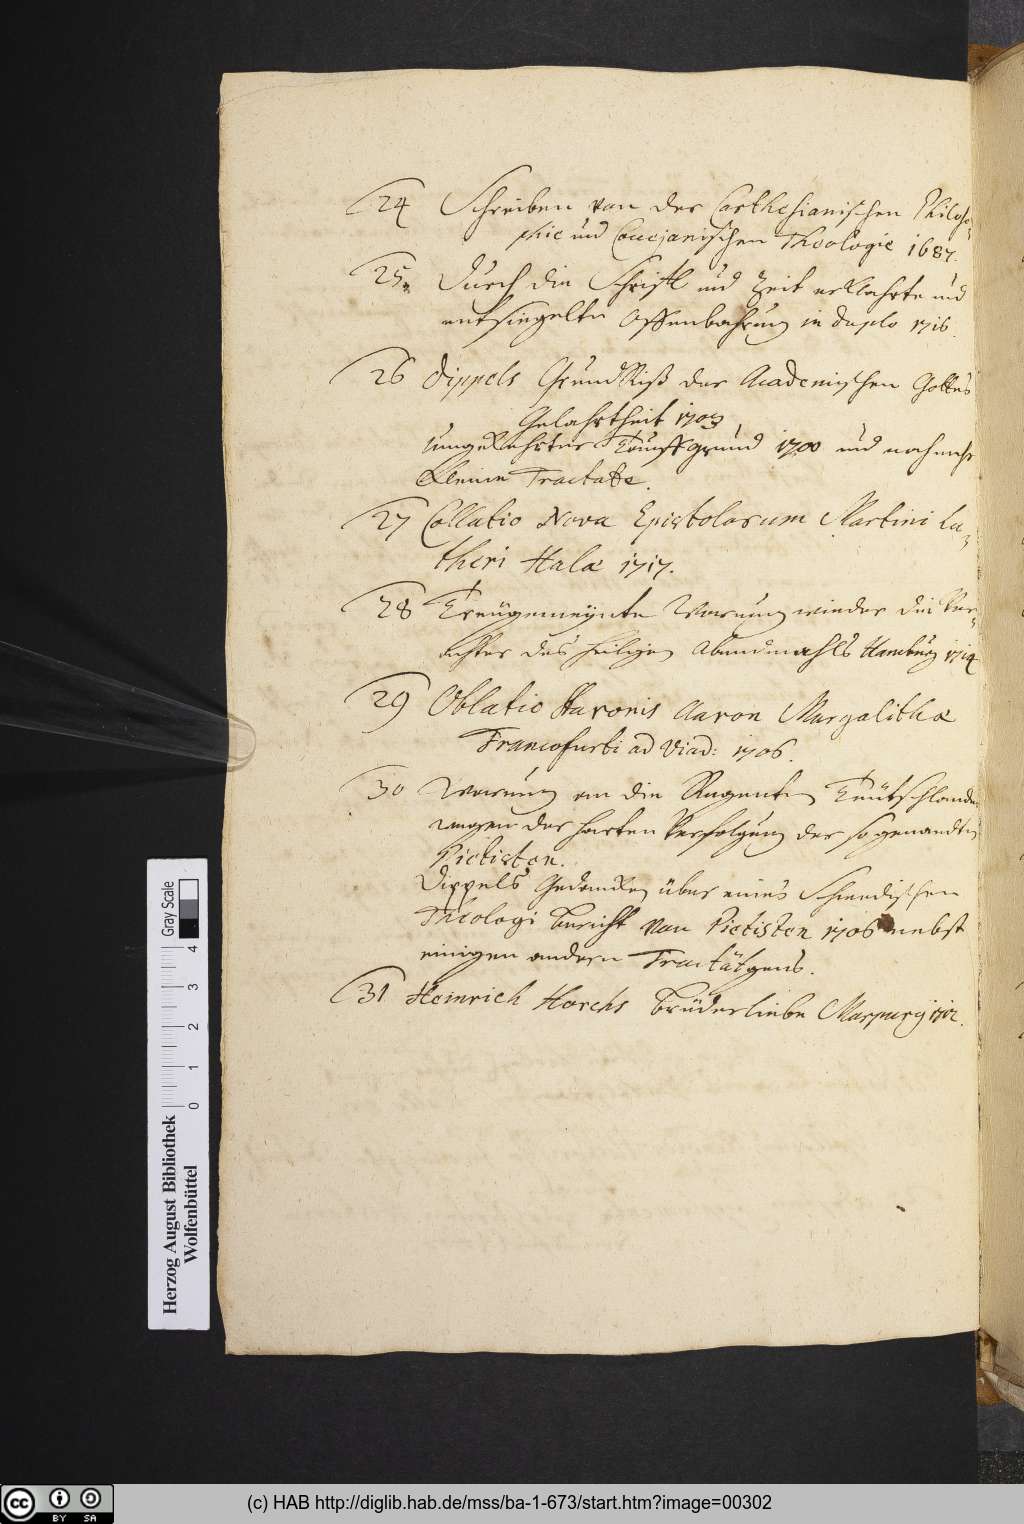 24 Schreiben von der Carthesianischen Philoso-
phie und Coccejanischen Theologie 1687.
25. Durch die Schrifft und Zeit erklahrte und
entsiegelte Offenbahrung in duplo 1716.
26 Dippels Grund Riß der Academischen Gottes
Gelahrtheit 1703
ungekehrter Tauffgrund 1700 und noch mehr
kleine Tractate.
27 Collatio Nova Epistolarum Martini Lu-
theri Halæ 1717.
28 Treugemeynte Warnung wieder die Ver-
ächter des heiligen Abendmahls Hamburg 1714
29 Oblatio Aaronis Aaron Margalithæ
Francofurti ad Viad: 1706.
30 Warnung an die Regenten Teutschlandes
wegen der harten Verfolgung der so genandten
Pietisten.
Dippels Gedancken über eines Schwedischen
Theologi Bericht von Pietisten 1706 nebst
einigen andern Tractätgens.
31 Heinrich Horchs Brüderliebe Marpurg 1712.
Herzog August Bibliothek
Wolfenbüttel
Gray Scale
0 1 2 3 4
cc BY SA
(c) HAB http://diglib.hab.de/mss/ba-1-673/start.htm?image=00302